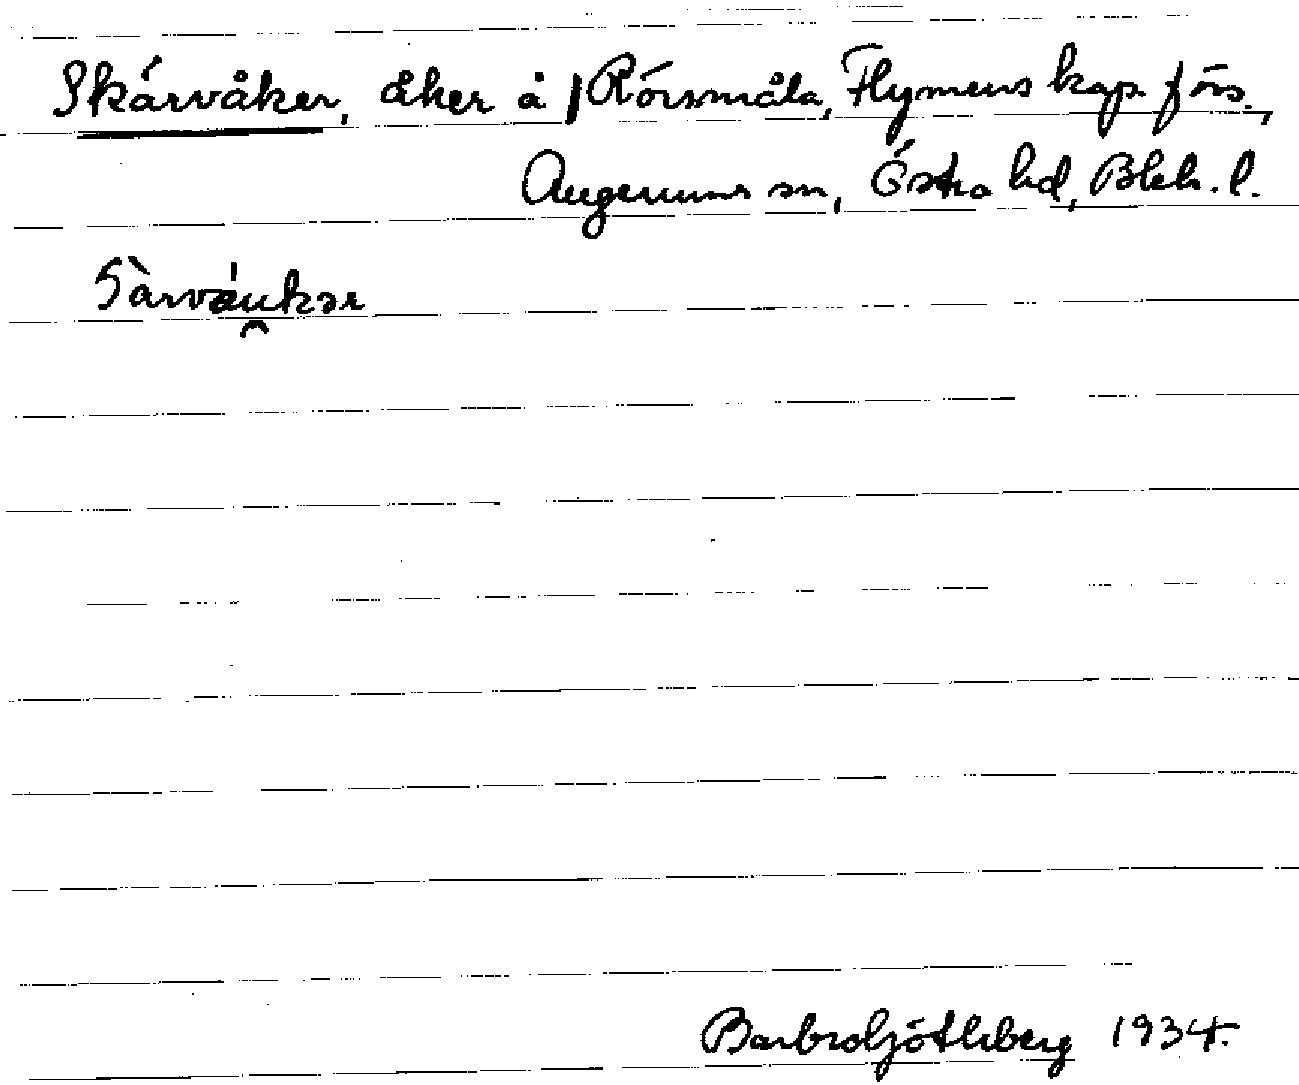 Skärvåker, åker å Rörsmåla, Flymens kap. förs.,
Augerums sn, Östra hd, Blek. l.
Barbro Götlaberg 1934.